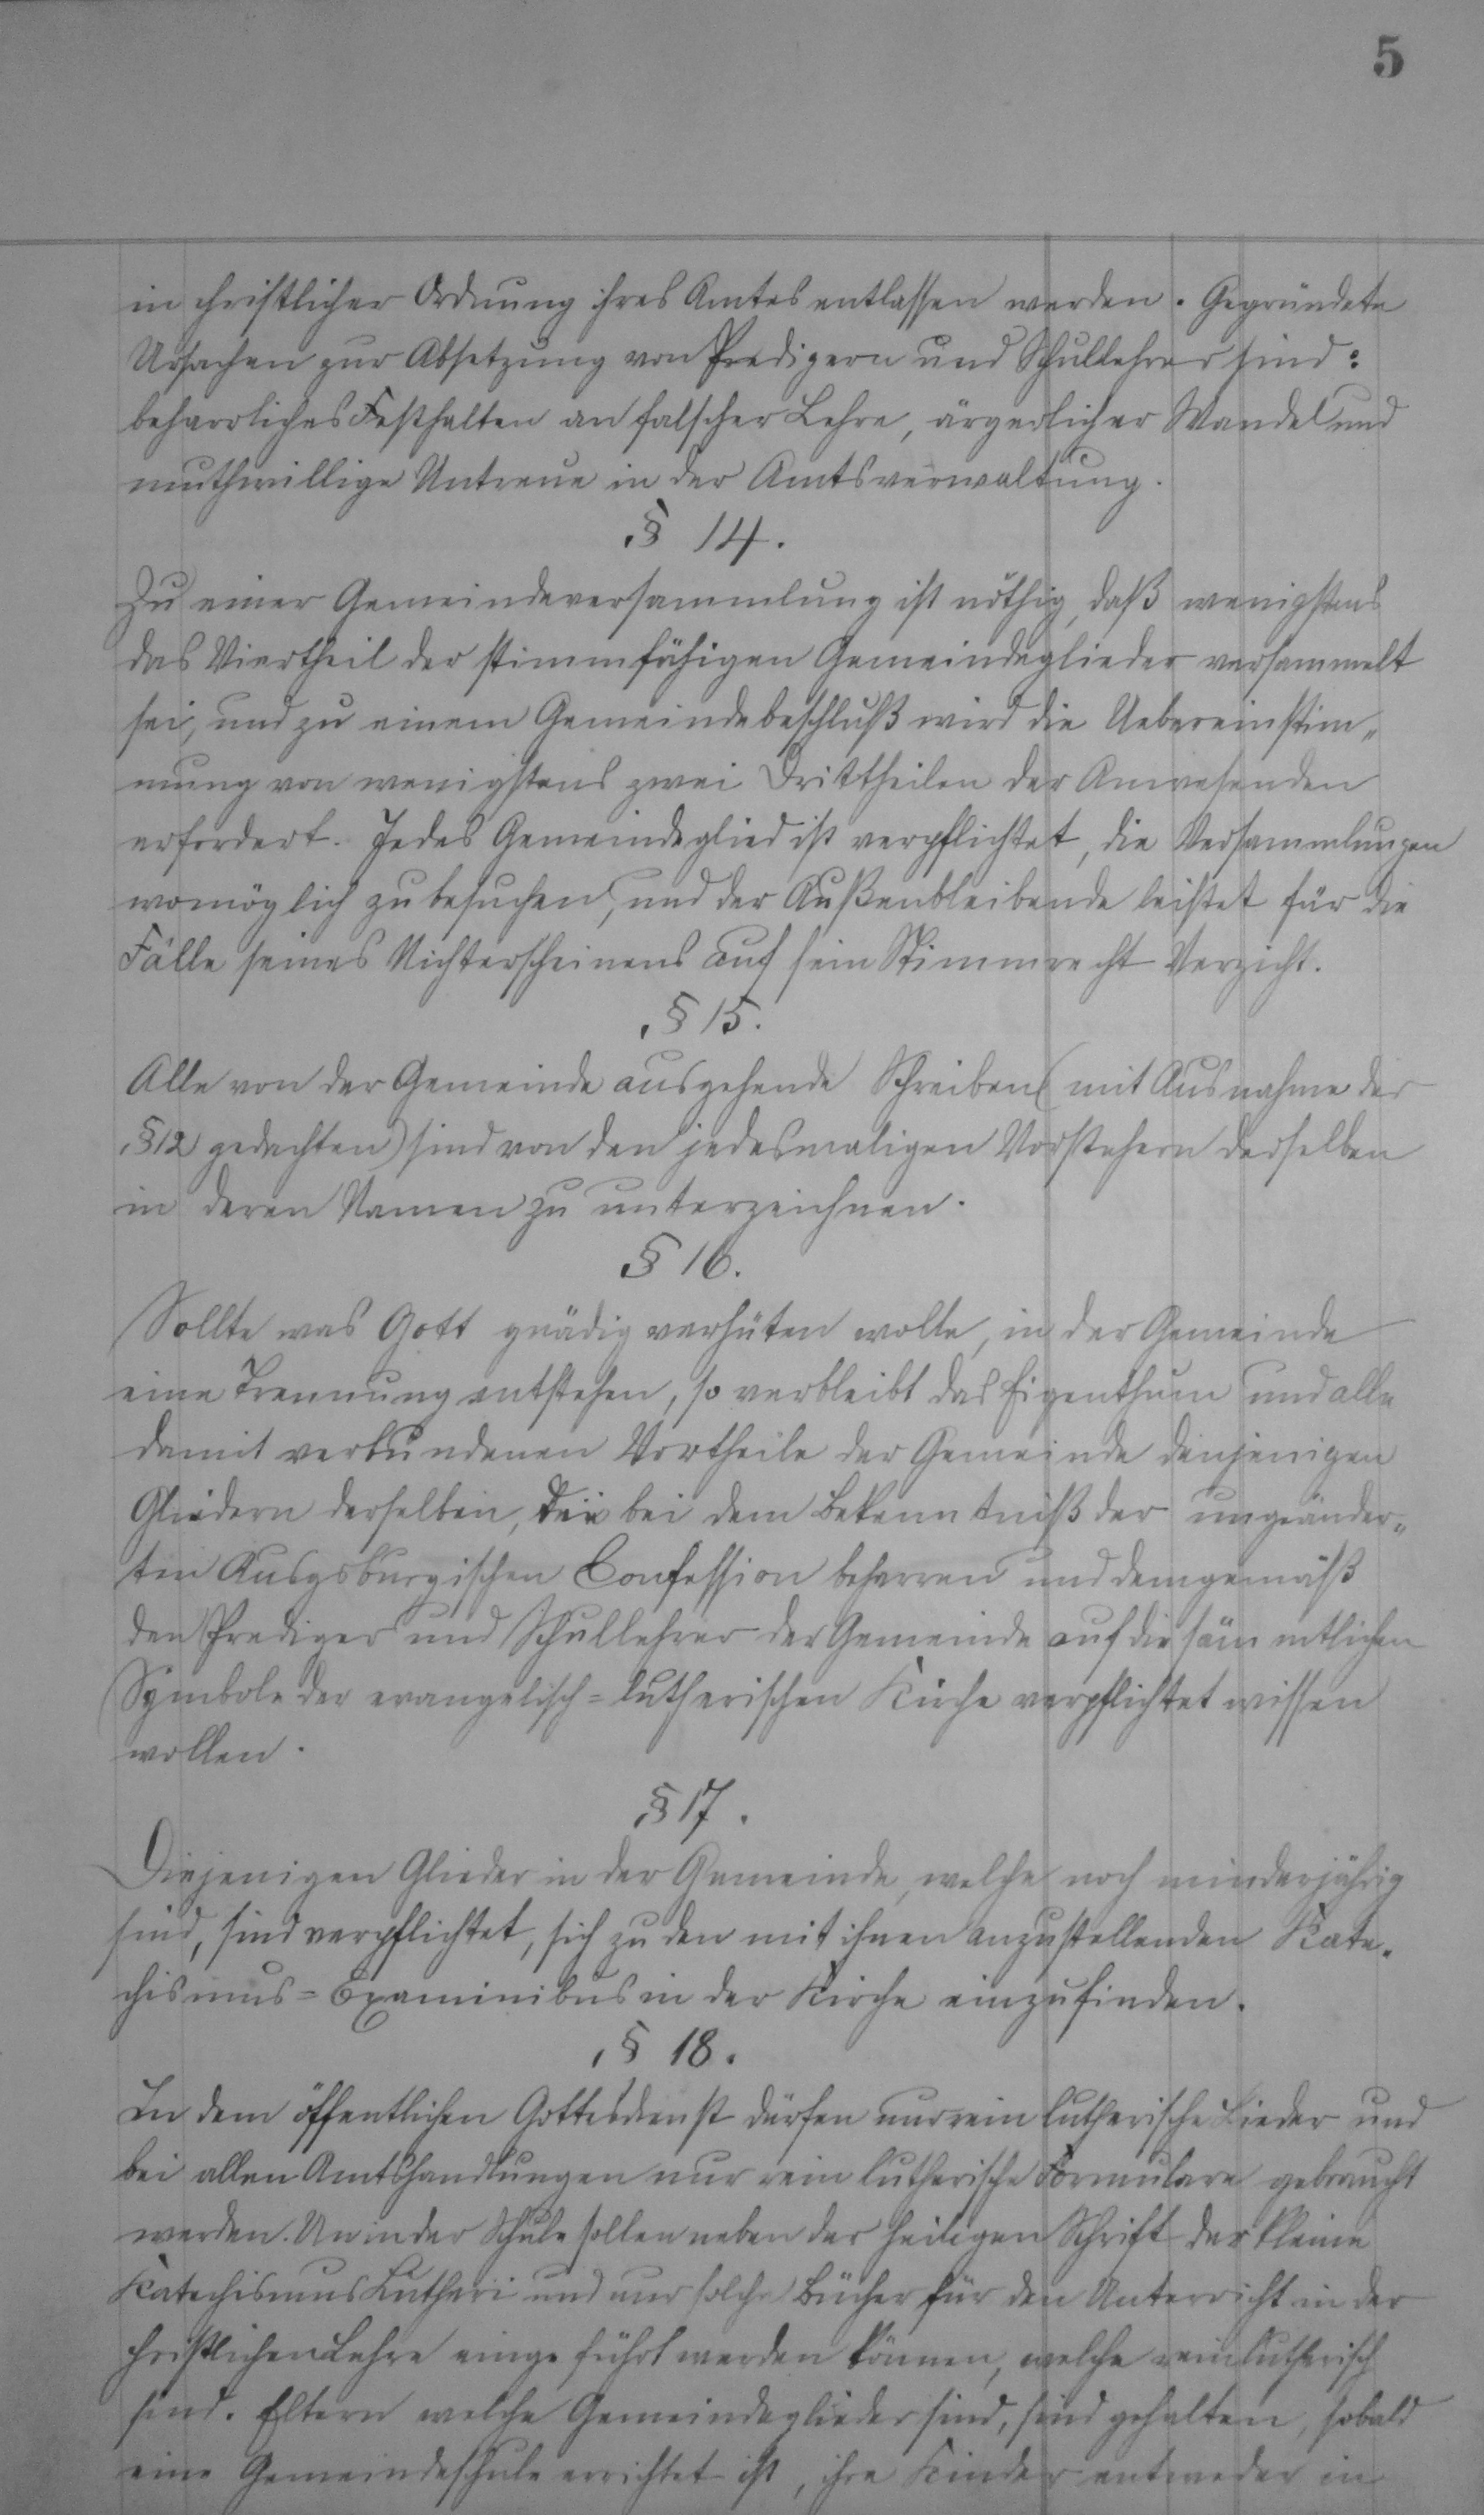 5
in christlicher Ordnung ihres Amtes entlassen werden. Gegründete
Ursachen zur Absetzung von Predigern und Schullehrer sind:
beharrliches Festhalten an falscher Lehre, ärgerlicher Wandel und
muthwillige Untreue in der Amtsverwaltung.
§ 14.
Zu einer Gemeindeversammlung ist nöthig, daß wenigstens
das Viertheil der stimmfähigen Gemeindeglieder versammelt
sei, und zu einem Gemeindebeschluß wird die Uebereinstim„
mung von wenigstens zwei Drittheilen der Anwesenden
erfordert. Jedes Gemeindeglied ist verpflichtet, die Versammlungen
womöglich zu besuchen, und der Außenbleibende leistet für die
Fälle seines Nichterscheinens auf sein Stimmrecht Verzicht.
§ 15.
Alle von der Gemeinde ausgehende Schreiben (mit Ausnahme der
§ 12 gedachten) sind von den jedesmaligen Vorstehern derselben
in deren Namen zu unterzeichnen.
§ 16.
Sollte was Gott gnädig verhüten wolle, in der Gemeinde
eine Trennung entstehen, so verbleibt das Eigenthum und alle
damit verbundenen Vortheile der Gemeinde denjenigen
Gliedern derselben, die bei dem Bekenntniß der ungeänder„
ten Ausgsburgischen Confession beharren und demgemäß
den Prediger und Schullehrer der Gemeinde auf die sämmtlichen
Symbole der evangelisch=lutherischen Kirche verpflichtet wissen
wollen.
§ 17.
Diejenigen Glieder in der Gemeinde, welche noch minderjährig
sind, sind verpflichtet, sich zu den mit ihnen anzustellenden Kate-
chismus=Examinibus in der Kirche einzufinden.
§ 18.
In dem öffentlichen Gottesdienst dürfen nur rein lutherische Lieder und
bei allen Amtshandlungen nur rein lutherische Formulare gebraucht
werden. Un in der Schule sollen neben der heiligen Schrift der kleine
Katechismus Lutheri und nur solche Bücher für den Unterricht in der
christlichen Lehre eingeführt werden können, welche rein lutherisch
sind. Eltern welche Gemeindeglieder sind, sind gehalten, sobald
eine Gemeindeschule errichtet ist, ihre Kinder entweder in